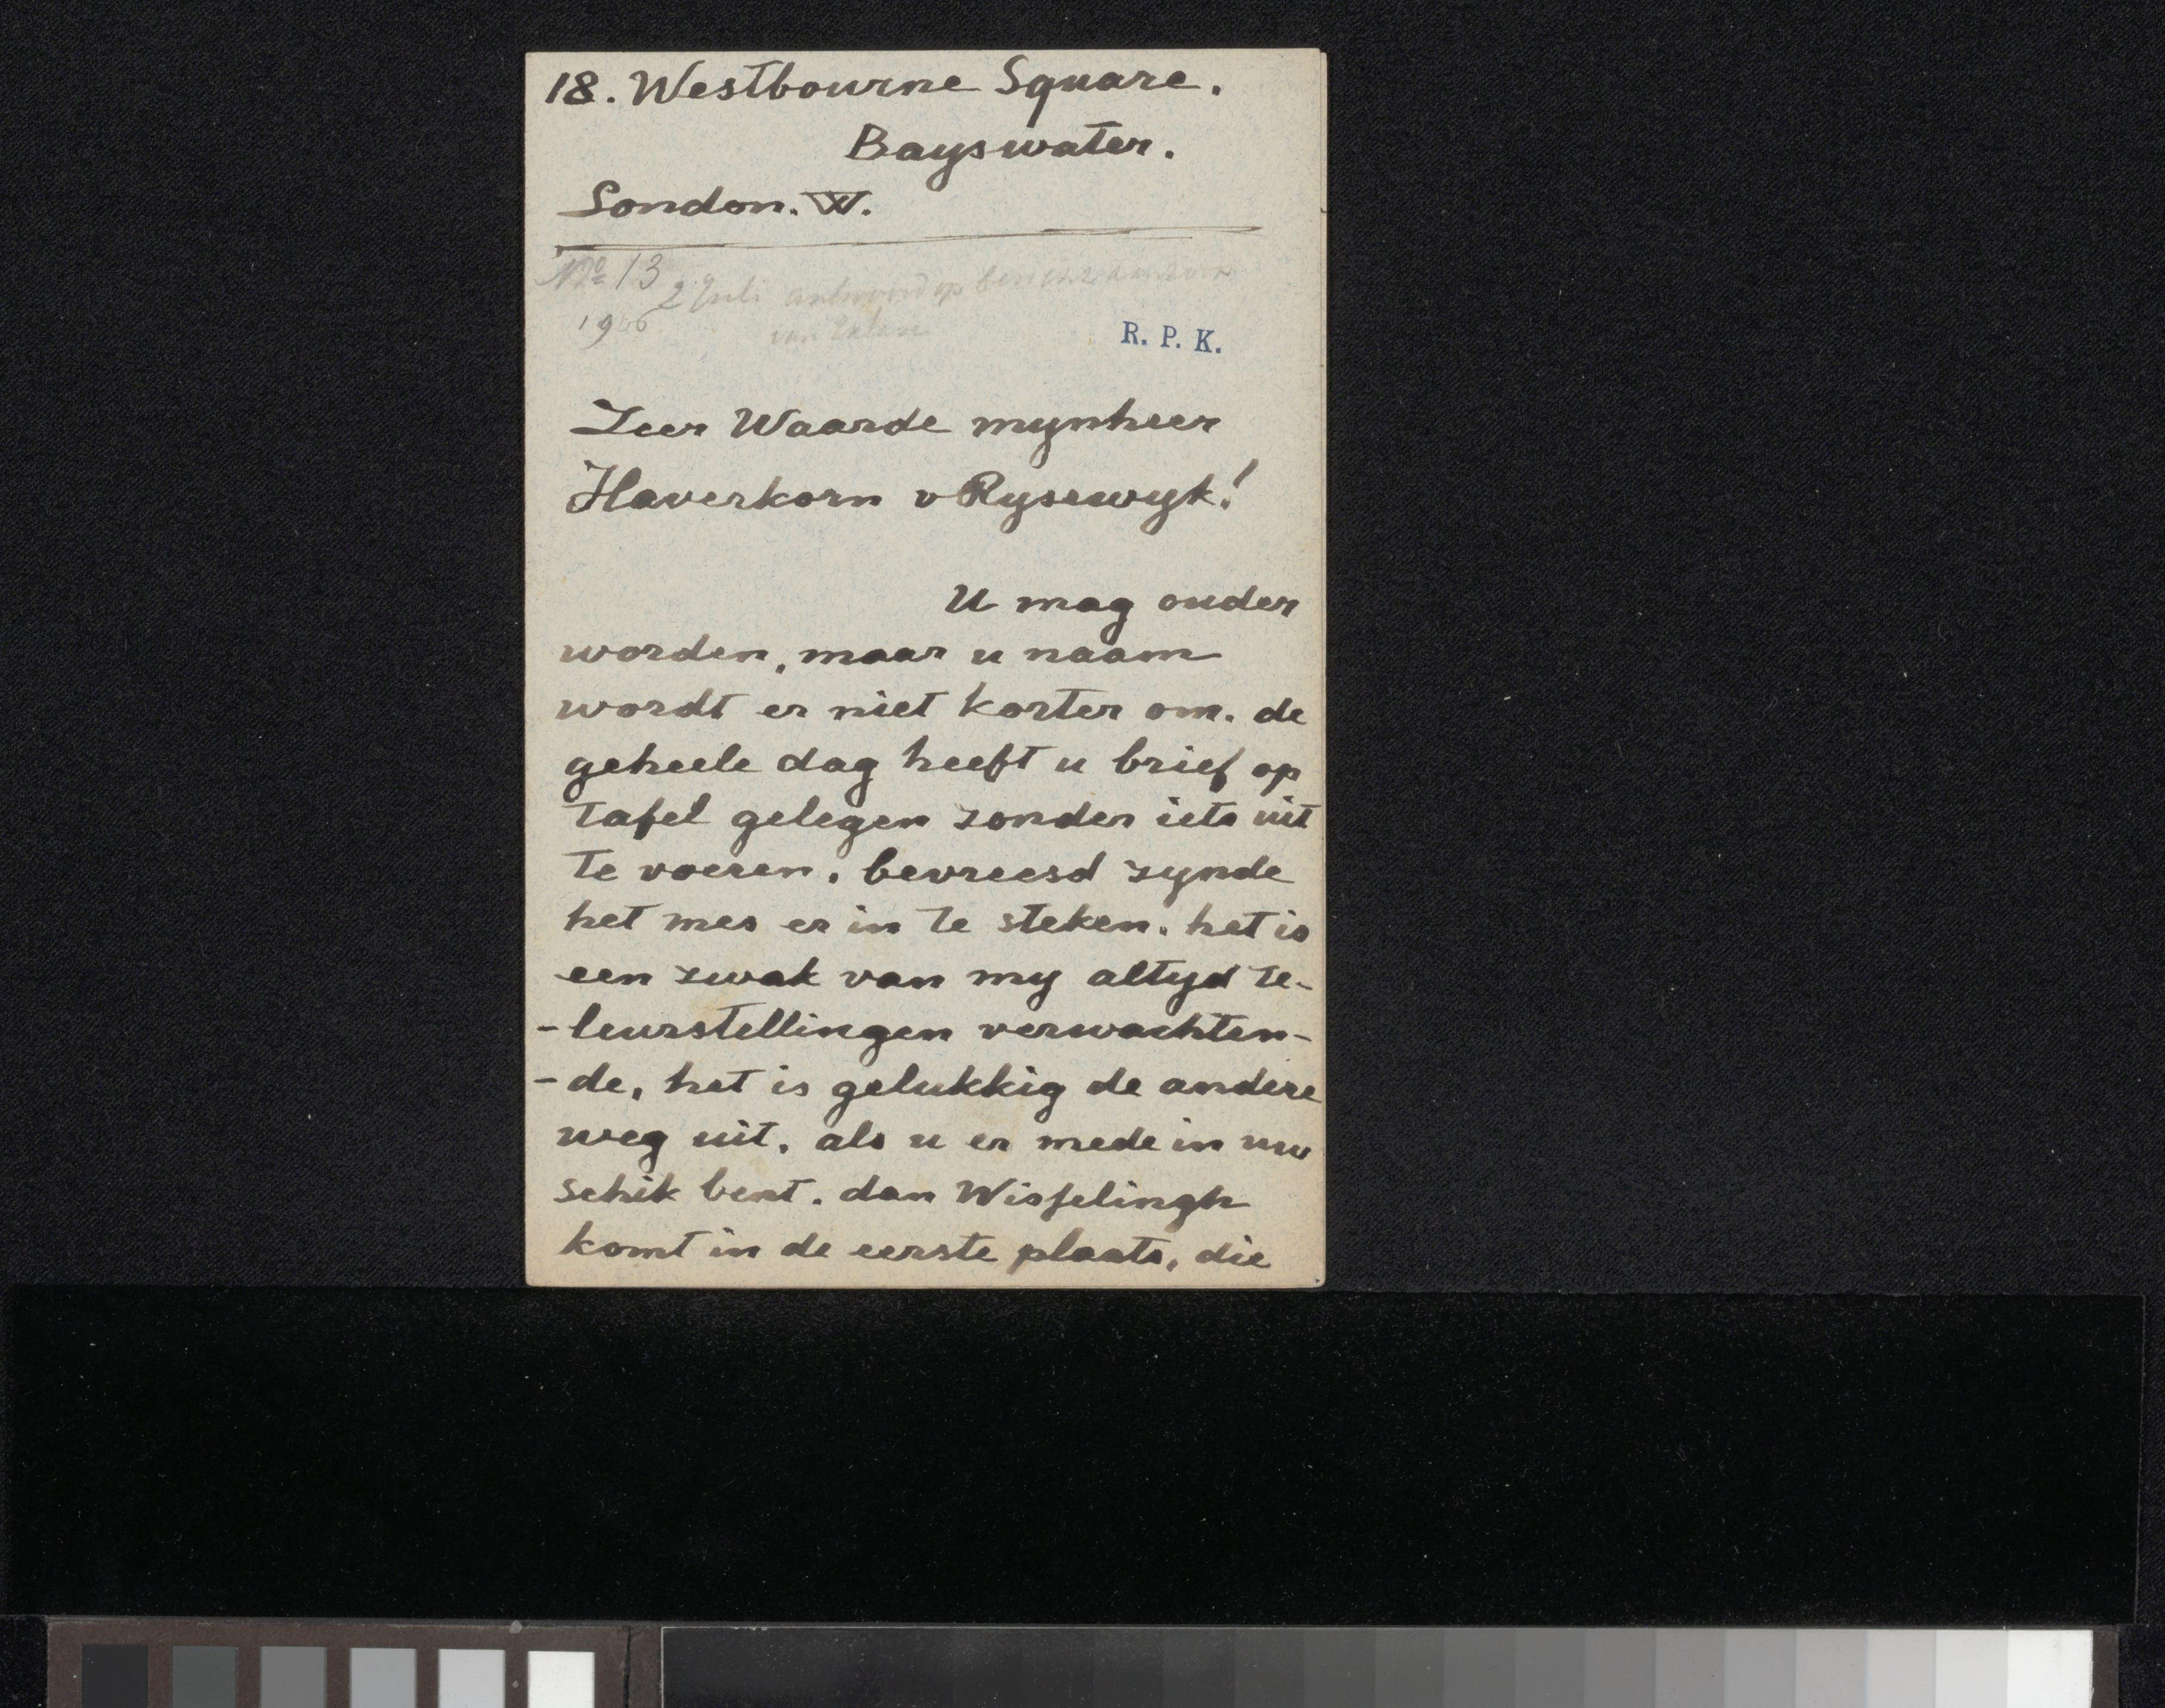 18. Westbourne Square.
Bayswater.
London. W.
No 13
2 Juli antwoord op
1906
van
R. P. K.
Zeer Waarde mynheer
Haverkorn v Rysewyk!
U mag ouder
worden, maar u naam
wordt er niet korter om. de
geheele dag heeft u brief op
tafel gelegen zonder iets uit
te voeren, bevreesd zynde
het mes er in te steken. het is
een zwak van my altyd te-
-leurstellingen verwachten-
-de, het is gelukkig de andere
weg uit, als u er mede in uw
schik bent. dan Wisselingh
komt in de eerste plaats, die